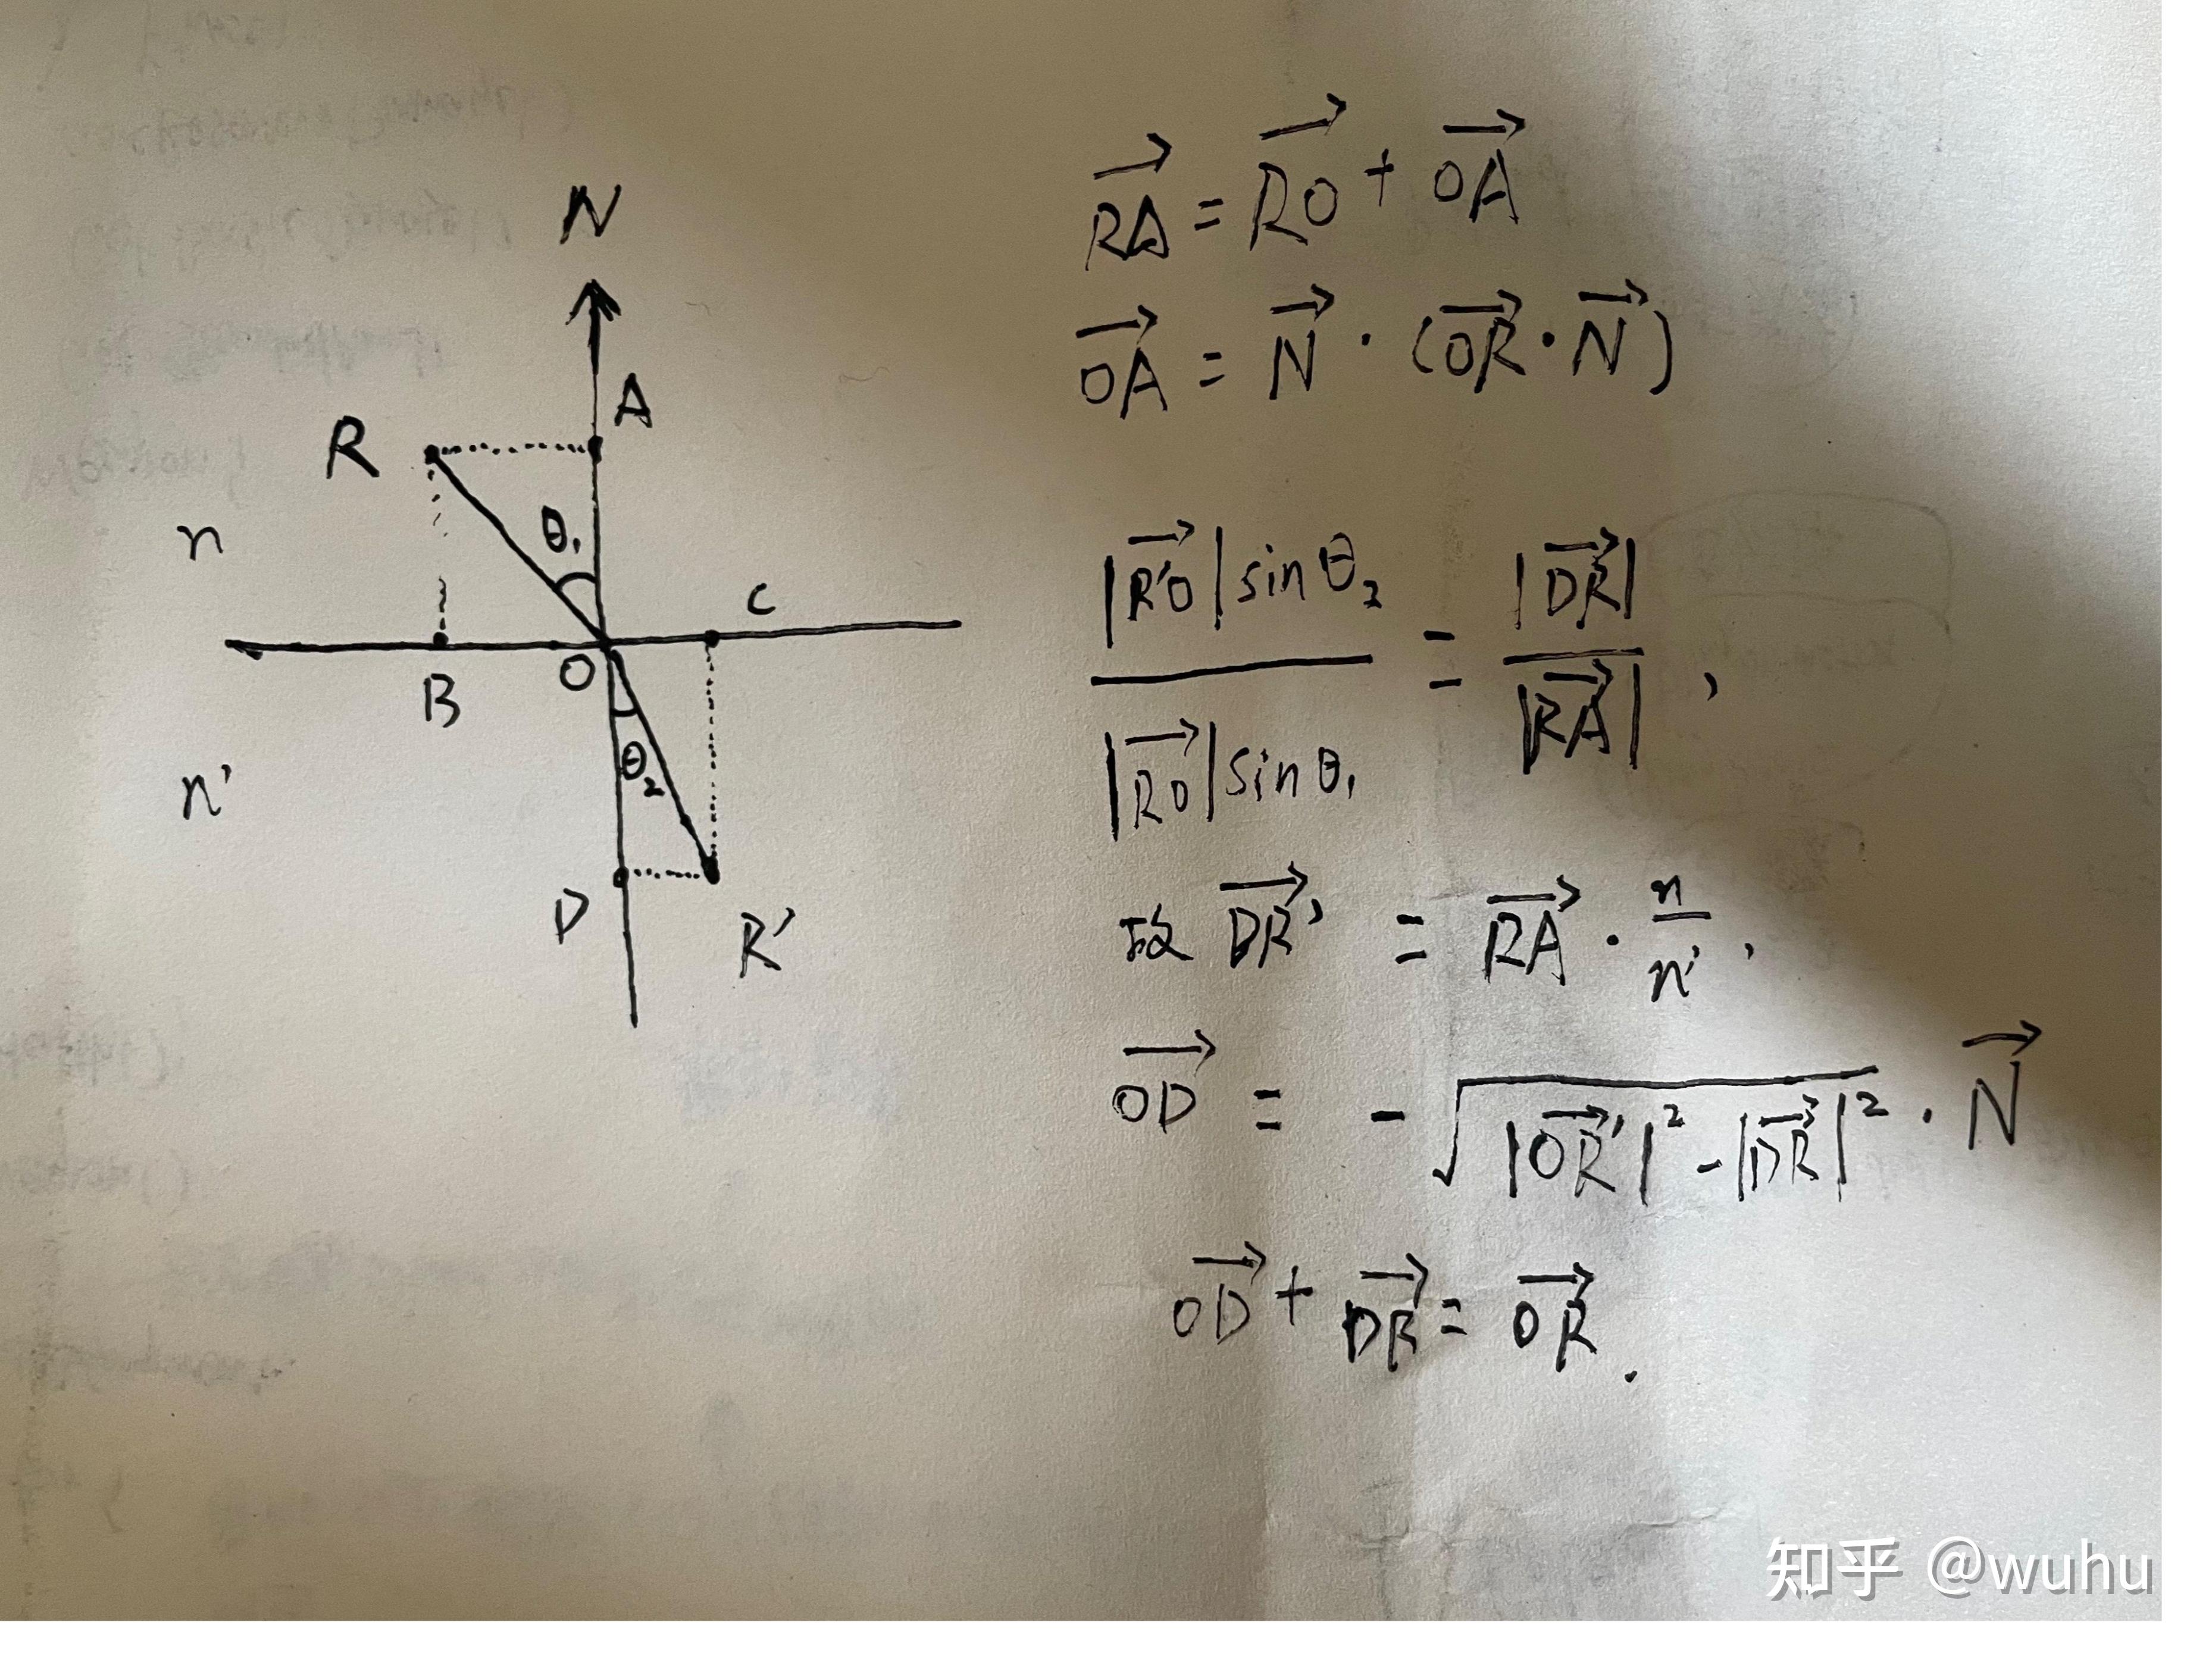 N
A
R
θ₁
n
C
O
B
n'
θ₂
D
R'
→RA = →RO + →OA
→OA = →N · (→OR · →N)
|→R'O| sinθ₂ / |→RO| sinθ₁ = |→DR'| / |→RA| ,
故 →DR' = →RA · n/n' ,
→OD = -√(|→OR'|² - |→DR'|²) · →N
→OD + →DR = →OR .
知乎 @wuhu